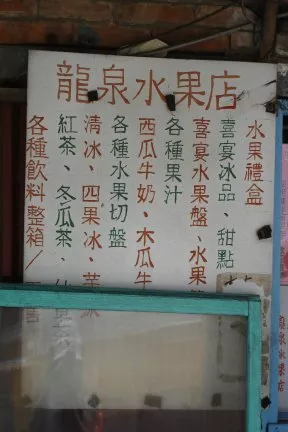 龍泉水果店
水果禮盒
喜宴冰品、甜點
喜宴水果盤、水果
各種果汁
西瓜牛奶、木瓜牛
各種水果切盤
清冰、四果冰、芋
紅茶、冬瓜茶、
各種飲料整箱/
龍泉水果店